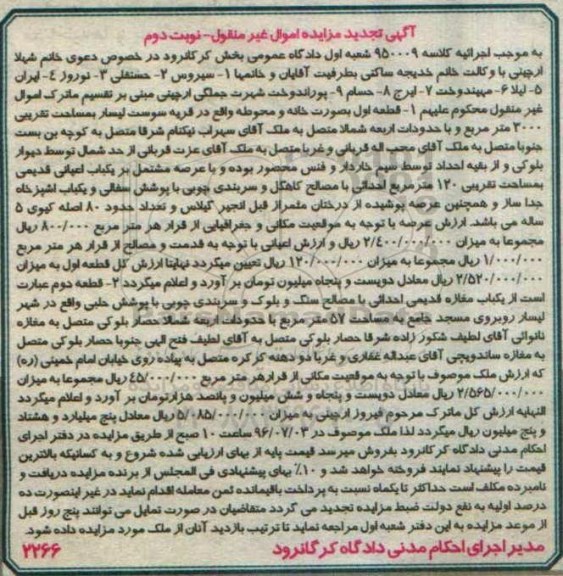 آگهی تجدید مزایده اموال غیر منقول- نوبت دوم
به موجب اجرائیه کلاسه ۹۵۰۰۰۹ شعبه اول دادگاه عمومی بخش کرگانرود در خصوص دعوی خانم شهلا
ارچینی با وکالت خانم خدیجه ساکتی بطرفیت آقایان و خانمها ۱- سیروس ۲- حسنقلی ۳- نوروز ٤- ایران
۵- لیلا ۶- مهیندوخت ۷- ایرج ۸- حسام ۹- پوراندوخت شهرت جملگی ارچینی مبنی بر تقسیم ماترک اموال
غیر منقول محکوم علیهم ۱- قطعه اول بصورت خانه و محوطه واقع در قریه سوست لیسار بمساحت تقریبی
۳۰۰۰ متر مربع و با حدودات اربعه شمالا متصل به ملک آقای سهراب نیکنام شرقا متصل به کوچه بن بست
جنوبا متصل به ملک آقای محب اله قربانی و غربا متصل به ملک آقای عزت قربانی از حد شمال توسط دیوار
بلوکی و از بقیه احداد توسط سیم خاردار و فنس محصور بوده و با عرصه مشتمل بر یکباب اعیانی قدیمی
بمساحت تقریبی ۱۲۰ متر مربع احداثی با مصالح کاهگل و سربندی چوبی با پوشش سفالی و یکباب اشپزخانه
جدا ساز و همچنین عرصه پوشیده از درختان مثمراز قبل انجیر گیلاس و تعداد حدود ۸۰ اصله کیوی ۵
ساله می باشد. ارزش عرصه با توجه به موقعیت مکانی و جغرافیایی از قرار هر متر مربع ۸۰۰/۰۰۰ ریال
مجموعا به میزان ۲/٤۰۰/۰۰۰/۰۰۰ ریال و ارزش اعیانی با توجه به قدمت و مصالح از قرار هر متر مربع
۱/۰۰۰/۰۰۰ ریال مجموعا به میزان ۱۲۰/۰۰۰/۰۰۰ ریال تعیین میگردد نهایتا ارزش کل قطعه اول به میزان
۲/۵۲۰/۰۰۰/۰۰۰ ریال معادل دویست و پنجاه میلیون تومان بر آورد و اعلام میگردد ۲- قطعه دوم عبارت
است از یکباب مغازه قدیمی احداثی با مصالح سنگ و بلوک و سربندی چوبی با پوشش حلبی واقع در شهر
لیسار روبروی مسجد جامع به مساحت ۵۷ متر مربع با حدودات اربعه شمالا حصار بلوکی متصل به مغازه
نانوائی آقای لطیف شکور زاده شرقا حصار بلوکی متصل به آقای لطیف فتح الهی جنوبا حصار بلوکی متصل
به مغازه ساندویچی آقای عبداله غفاری و غربا دو دهنه کرکره متصل به پیاده روی خیابان امام خمینی (ره)
که ارزش ملک موصوف با توجه به موقعیت مکانی از قرار هر متر مربع ٤۵/۰۰۰/۰۰۰ ریال مجموعا به میزان
۲/۵۶۵/۰۰۰/۰۰۰ ریال معادل دویست و پنجاه و شش میلیون و پانصد هزارتومان بر آورد و اعلام میگردد
النهایه ارزش کل ماترک مرحوم فیروز ارچینی به میزان ۵/۰۸۵/۰۰۰/۰۰۰ ریال معادل پنج میلیارد و هشتاد
و پنج میلیون ریال میگردد لذا ملک موصوف در ۹۶/۰۷/۰۳ ساعت ۱۰ صبح از طریق مزایده در دفتر اجرای
احکام مدنی دادگاه کرگانرود بفروش میرسد قیمت پایه از بهای ارزیابی شده شروع و به کسانیکه بالاترین
قیمت را پیشنهاد نمایند فروخته خواهد شد و ۱۰٪ بهای پیشنهادی فی المجلس از برنده مزایده دریافت و
نامبرده مکلف است حداکثر تا یکماه نسبت به پرداخت باقیمانده ثمن معامله اقدام نماید در غیر اینصورت ده
درصد اولیه به نفع دولت ضبط مزایده تجدید می گردد متقاضیان در صورت تمایل می توانند پنج روز قبل
از موعد مزایده به این دفتر شعبه اول مراجعه نماید تا ترتیب بازدید آنان از ملک مورد مزایده داده شود.
مدیر اجرای احکام مدنی دادگاه کرگانرود ۲۲۶۶